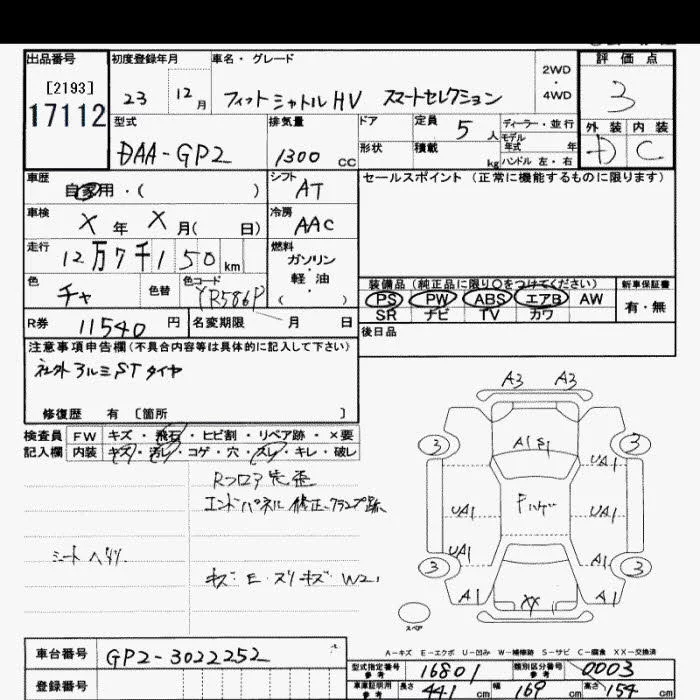 出品番号 初度登録年月 車名・グレード 評価点
[2193]
17112
23 12月 フィットシャトルHV スマートセレクション 2WD・4WD 3
型式 排気量 ドア 定員 5人 ディーラー・並行 外装 内装
モデル年式 年
DAA-GP2 1300cc 形状 積載 kg ハンドル 左・右 D C
車歴 自家用・( ) シフト AT セールスポイント(正常に機能するものに限ります)
車検 X年X月( 日) 冷房 AAC
走行 12万7千150km 燃料 ガソリン・軽油( )
色 チャ 色替 色コード YR586P
装備品(純正品に限り〇をつけてください) 新車保証書
PS PW ABS エアB AW 有・無
SR ナビ TV カワ
R券 11540円 名変期限 月 日 後日品
注意事項申告欄(不具合内容等は具体的に記入して下さい)
社外アルミSTタイヤ
修復歴 有〔箇所 〕
検査員記入欄 FW キズ・飛石・ヒビ割・リペア跡・×要
内装 キズ・汚レ・コゲ・穴・スレ・キレ・破レ
Rフロア先歪
エンドパネル修正、クランプ跡
シートヘタリ
キズ E・スリキズ W21
A3 A3
3 A1S1 3
UA1
UA1 Fハゲ UA1
UA1 A1
3 3
A1 XX A1
スペア
A-キズ E-エクボ U-凹み W-補修跡 S-サビ C-腐食 XX-交換済
車台番号 GP2-3022252
登録番号
型式指定番号参考 16801 類別区分番号参考 0003
車庫証明用参考 長さ 441cm 幅 169cm 高さ 154cm